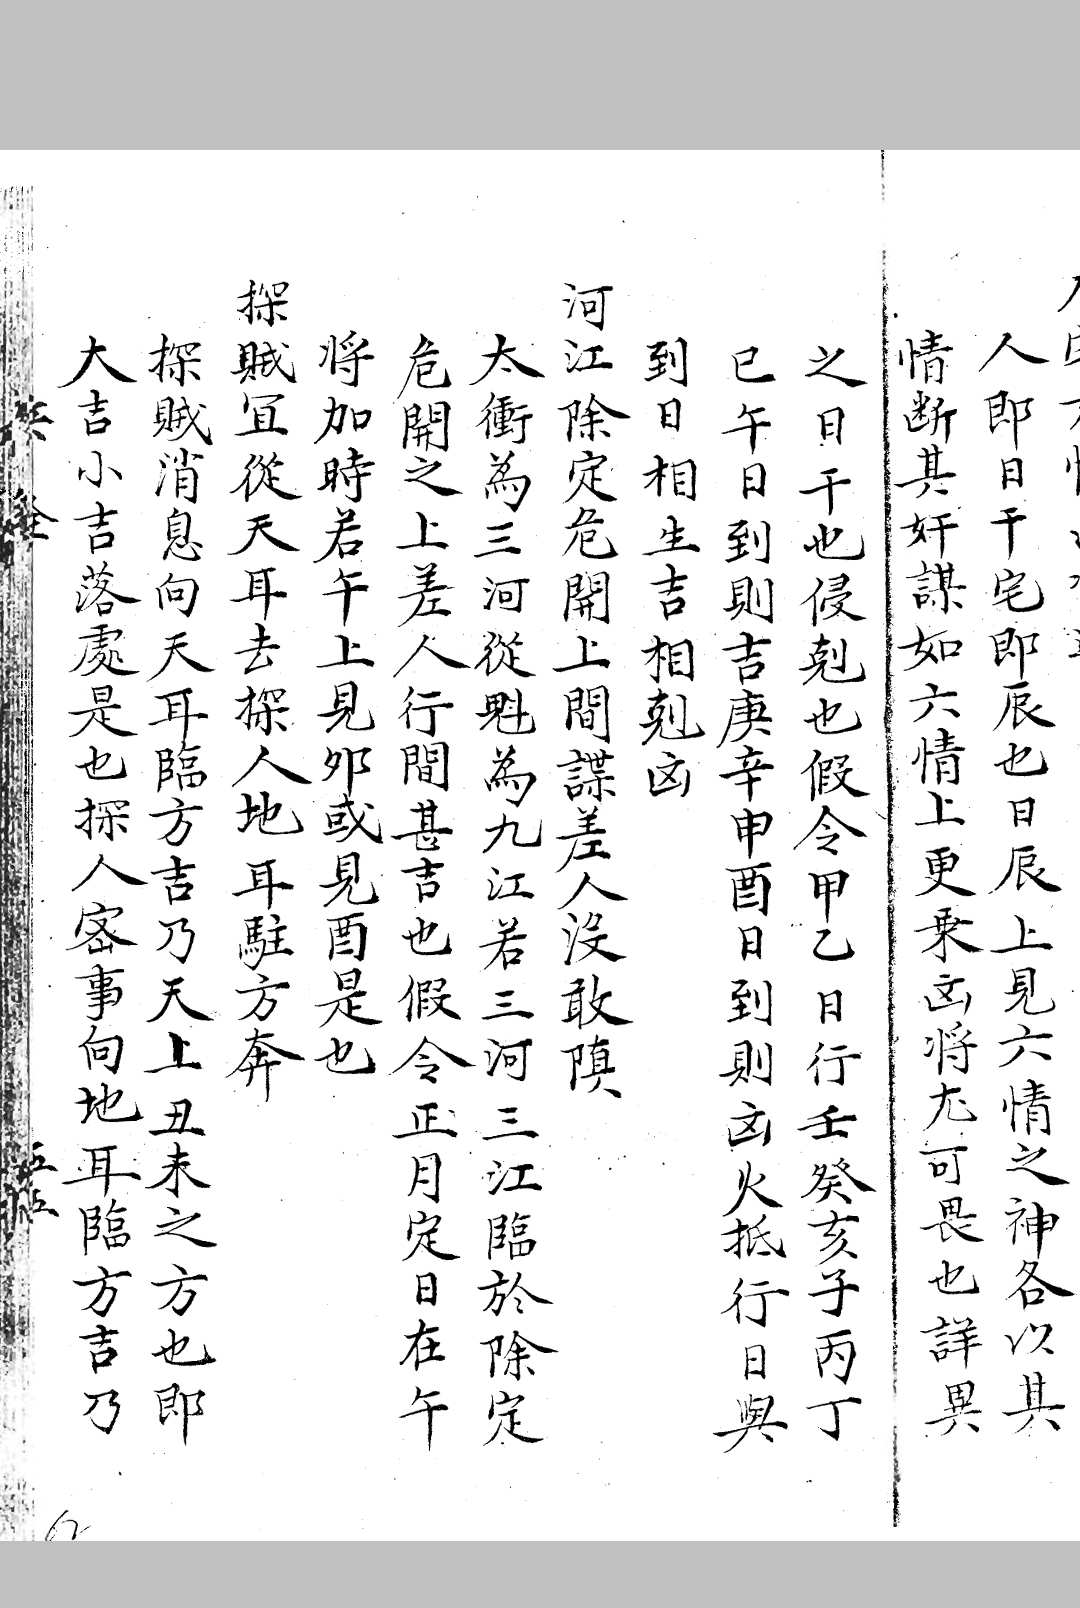 人即日干宅即辰也日辰上見六情之神各以其
情断其奸謀如六情上更乗凶将尤可畏也詳異
之日干也侵剋也假令甲乙日行壬癸亥子丙丁
巳午日到則吉庚辛申酉日到則凶火抵行日與
到日相生吉相剋凶
河江除定危開上間諜差人没敢隕
太衝為三河從魁為九江若三河三江臨於除定
危開之上差人行間甚吉也假令正月定日在午
将加時若午上見夘或見酉是也
探賊宜從天耳去探人地耳駐方奔
探賊消息向天耳臨方吉乃天上丑未之方也即
大吉小吉落處是也探人密事向地耳臨方吉乃